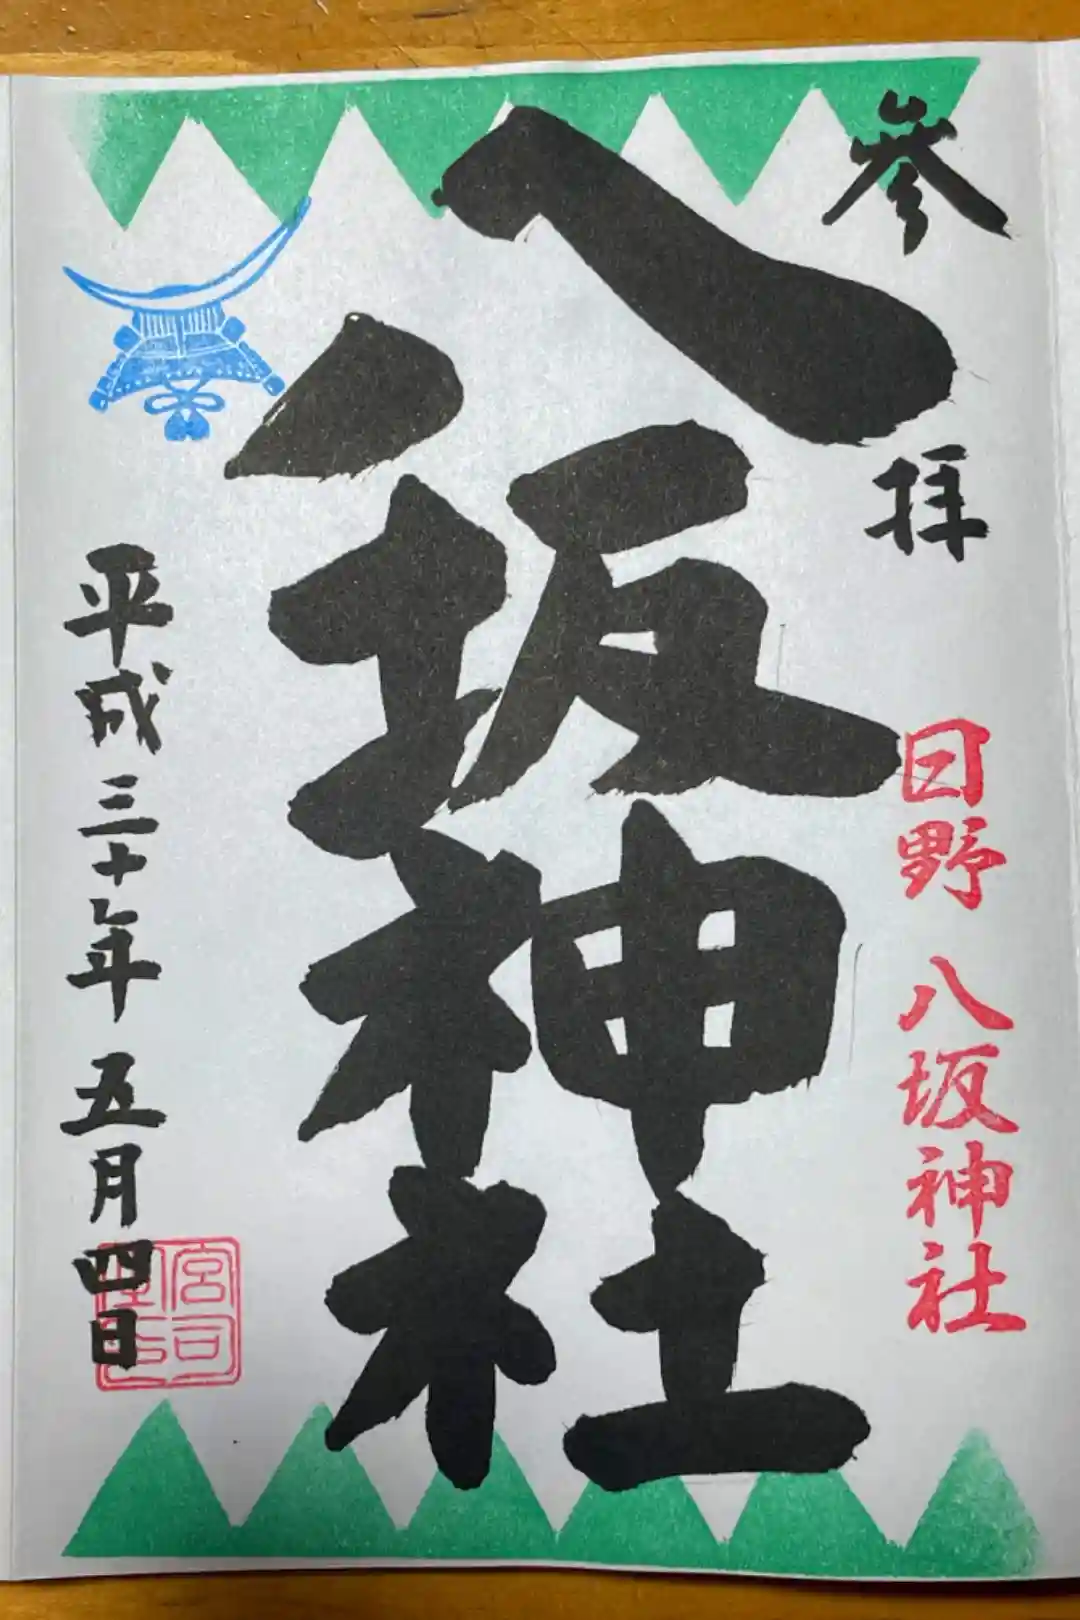 参拝
日野 八坂神社
八坂神社
平成三十年 五月四日
宮司之印